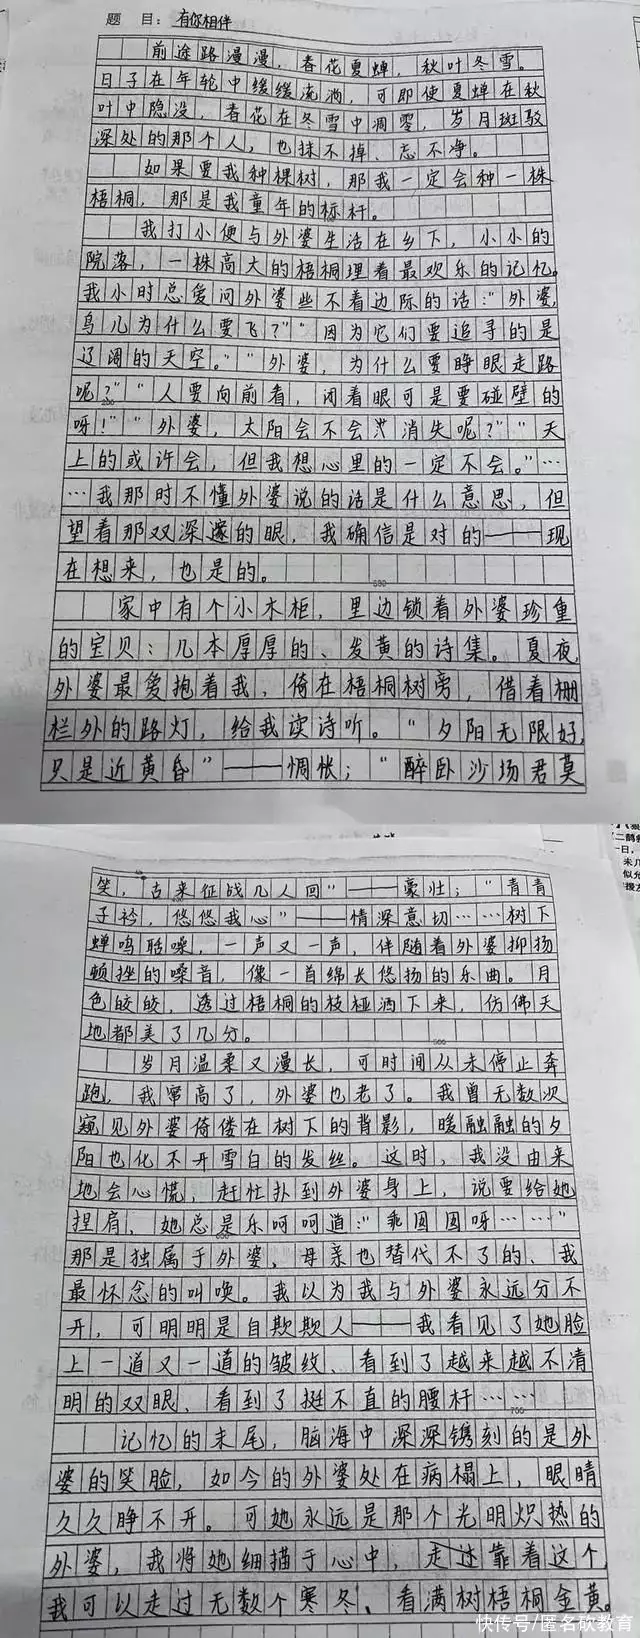 题 目：有你相伴
前途路漫漫，春花夏蝉，秋叶冬雪。
日子在年轮中缓缓流淌，可即使夏蝉在秋
叶中隐没，春花在冬雪中凋零，岁月斑驳
深处的那个人，也抹不掉、忘不净。
如果要我种棵树，那我一定会种一株
梧桐，那是我童年的标杆。
我打小便与外婆生活在乡下，小小的
院落，一株高大的梧桐埋着最欢乐的记忆。
我小时总爱问外婆些不着边际的话：“外婆，
鸟儿为什么要飞？”“因为它们要追寻的是
辽阔的天空。”“外婆，为什么要睁眼走路
呢？”“人要向前看，闭着眼可是要碰壁的
呀！”“外婆，太阳会不会消失呢？”“天
上的或许会，但我想心里的一定不会。”…
…我那时不懂外婆说的话是什么意思，但
望着那双深邃的眼，我确信是对的——现
在想来，也是的。
家中有个小木柜，里边锁着外婆珍重
的宝贝：几本厚厚的、发黄的诗集。夏夜，
外婆最爱抱着我，倚在梧桐树旁，借着栅
栏外的路灯，给我读诗听。“夕阳无限好，
只是近黄昏”——惆怅；“醉卧沙场君莫
笑，古来征战几人回”——豪壮；“青青
子衿，悠悠我心”——情深意切……树下
蝉鸣聒噪，一声又一声，伴随着外婆抑扬
顿挫的嗓音，像一首绵长悠扬的乐曲。月
色皎皎，透过梧桐的枝桠洒下来，仿佛天
地都美了几分。
岁月温柔又漫长，可时间从未停止奔
跑，我窜高了，外婆也老了。我曾无数次
窥见外婆倚偻在树下的背影，暖融融的夕
阳也化不开雪白的发丝。这时，我没由来
地会心慌，赶忙扑到外婆身上，说要给她
捏肩，她总是乐呵呵道：“乖囡囡呀……”
那是独属于外婆，母亲也替代不了的、我
最怀念的叫唤。我以为我与外婆永远分不
开，可明明是自欺欺人——我看见了她脸
上一道又一道的皱纹、看到了越来越不清
明的双眼、看到了挺不直的腰杆……
记忆的末尾，脑海中深深镌刻的是外
婆的笑脸，如今的外婆处在病榻上，眼睛
久久睁不开。可她永远是那个光明炽热的
外婆，我将她细描于心中，走过靠着这个，
我可以走过无数个寒冬、看满树梧桐金黄。
快传号/匿名砍教育